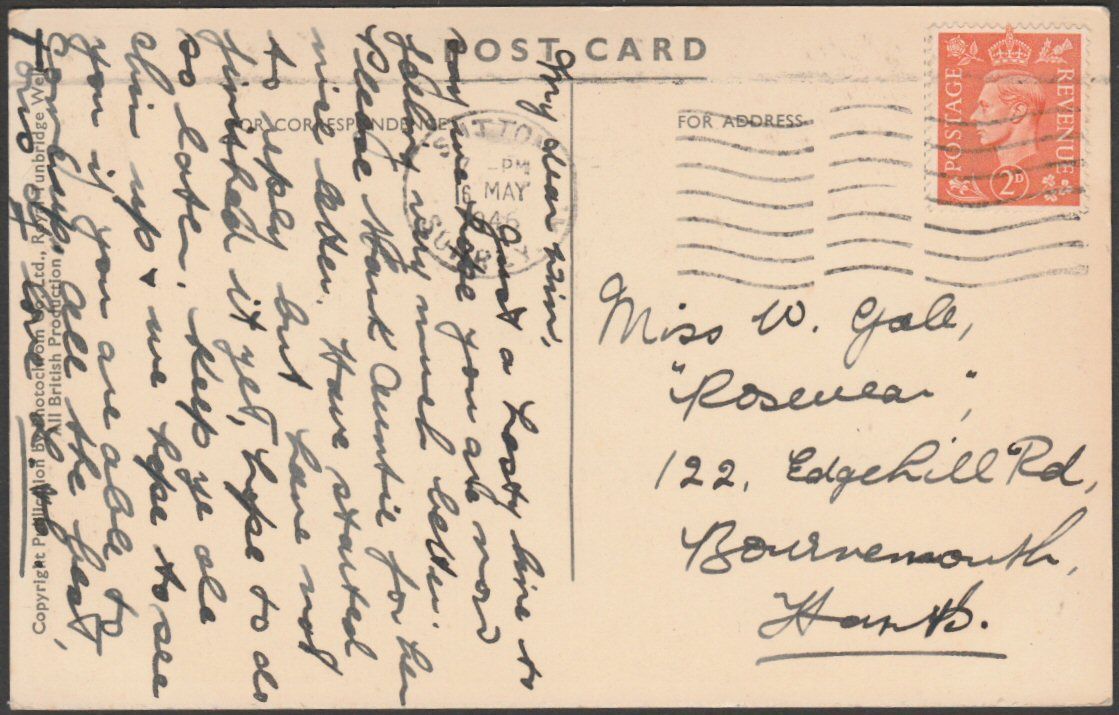 POST CARD
FOR CORRESPONDENCE
FOR ADDRESS
POSTAGE
REVENUE
2D
SUTTON
PM
6 MAY
1946
SURREY
My dear Win,
Just a hasty line to
say we hope you are now
feeling very much better.
Please thank Auntie for her
nice letter. Have started
to reply but have not
finished it yet, hope to do
so later. Keep ye ole
chin up & we hope to see
you if you are able to
come up. All the best,
love
Copyright Publication by Photochrom Co. Ltd., Royal Tunbridge Wells
All British Production
Miss W. Gale,
"Rosevear",
122, Edgehill Rd,
Bournemouth,
Hants.